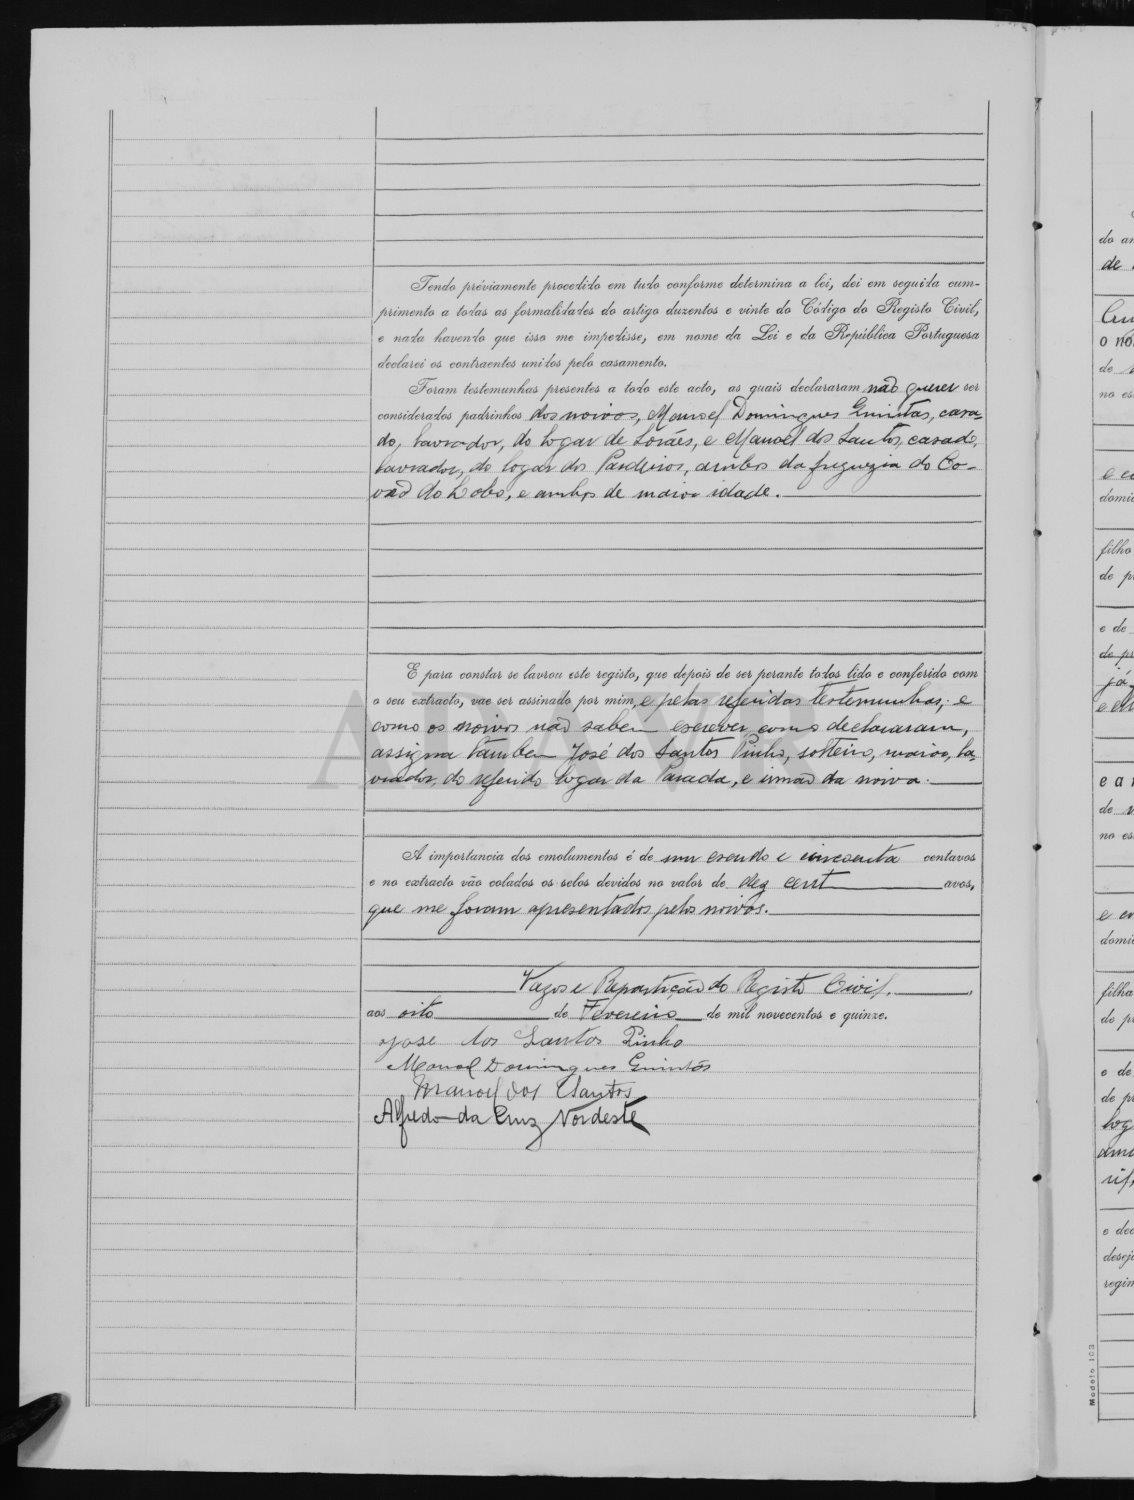 Tendo préviamente procedido em tudo conforme determina a lei, dei em seguida cum-
primento a todas as formalidades do artigo duzentos e vinte do Código do Registo Civil,
e nada havendo que isso me impedisse, em nome da Lei e da República Portuguesa
declarei os contraentes unidos pelo casamento.
Foram testemunhas presentes a todo este acto, as quais declararam não querer ser
considerados padrinhos dos noivos, Manoel Domingues Guintas, casa-
do, lavrador, do logar de Lorães, e Manoel dos Santos, casado,
lavrador, do logar dos Pardieiros, ambos da freguezia do Co-
vão do Lobo, e ambos de maior idade.
E para constar se lavrou este registo, que depois de ser perante todos lido e conferido com
o seu extracto, vae ser assinado por mim, e pelas referidas testemunhas; e
como os noivos não sabem escrever, como declararam,
assigna tambem José dos Santos Pinho, solteiro, maior, la-
vrador, do referido logar da Parada, e irmão da noiva.
A importancia dos emolumentos é de um escudo e cincoenta centavos
e no extracto vão colados os selos devidos no valor de dez cent avos,
que me foram apresentados pelos noivos.
Vagos e Repartição do Registo Civil.
aos oito de Fevereiro de mil novecentos e quinze.
José dos Santos Pinho
Manoel Domingues Guintas
Manoel dos Santos
Alfredo da Cruz Nordeste
do an
de
o no
de
no es
e co
domic
filho
de p
e de
de pr
já
e a
de
no es
e
domic
filha
de p
e de
de p
log
e dec
deseja
regim
Modelo 103